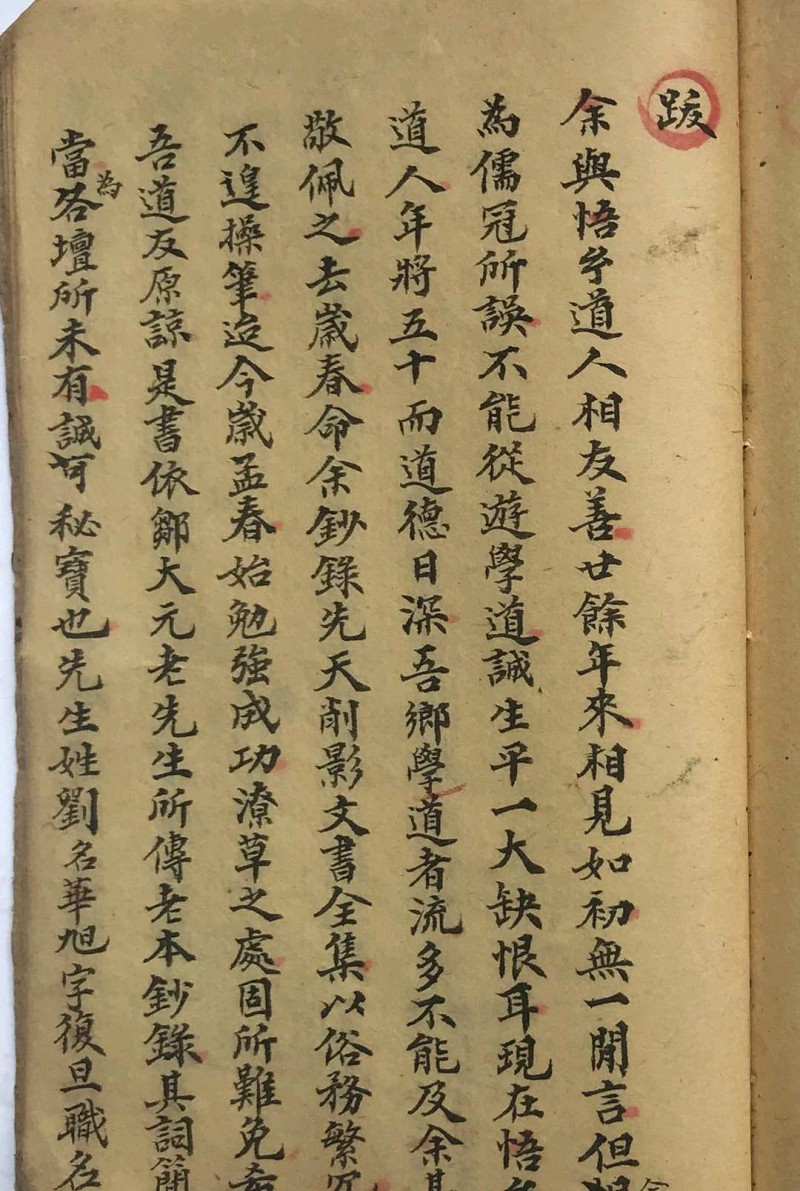 跋
余與悟玄道人相友善廿餘年來相見如初無一閒言但
為儒冠所誤不能從遊學道誠生平一大缺恨耳現在悟
道人年將五十而道德日深吾鄉學道者流多不能及余甚
敬佩之去歲春命余鈔錄先天削影文書全集以俗務繁冗
不遑操筆迨今歲孟春始勉強成功潦草之處固所難免希
吾道友原諒是書依鄒大元老先生所傳老本鈔錄其詞簡
當為各壇所未有誠可秘寶也先生姓劉名華旭字復旦職名